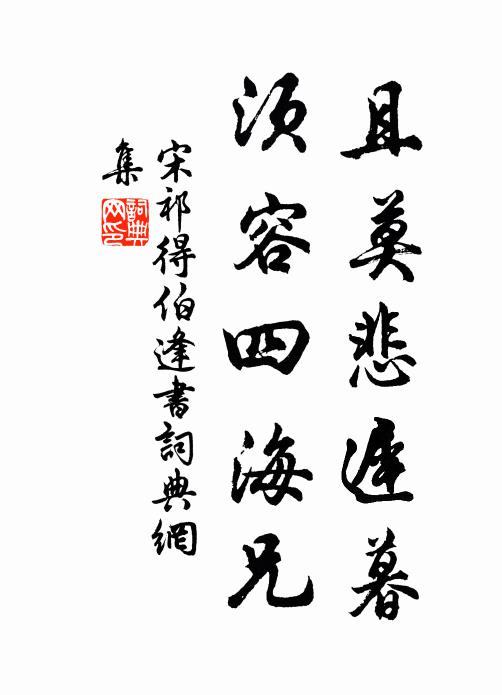 且莫悲遲暮
須容四海兄
宋祁得伯逢書詞典網
集
詞典
网印